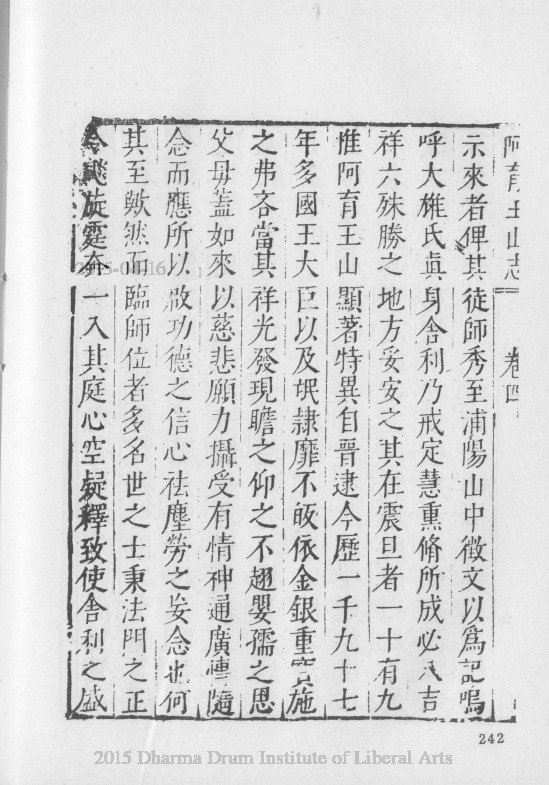 阿育王山志 卷四
示來者俾其徒師秀至浦陽山中徵文以爲記嗚
呼大雄氏真身舍利乃戒定慧熏脩所成必八吉
祥六殊勝之地方妥安之其在震旦者一十有九
惟阿育王山顯著特異自晉逮今歷一千九十七
年多國王大臣以及氓隷靡不皈依金銀重寶施
之弗吝當其祥光發現瞻之仰之不趐嬰孺之思
父母蓋如來以慈悲願力攝受有情神通廣慱隨
念而應所以啟功德之信心祛塵勞之妄念也何
其至歟然而臨師位者多名世之士秉法門之正
令飈旋霆奔一入其庭心空疑釋致使舍利之盛
242
2015 Dharma Drum Institute of Liberal Arts